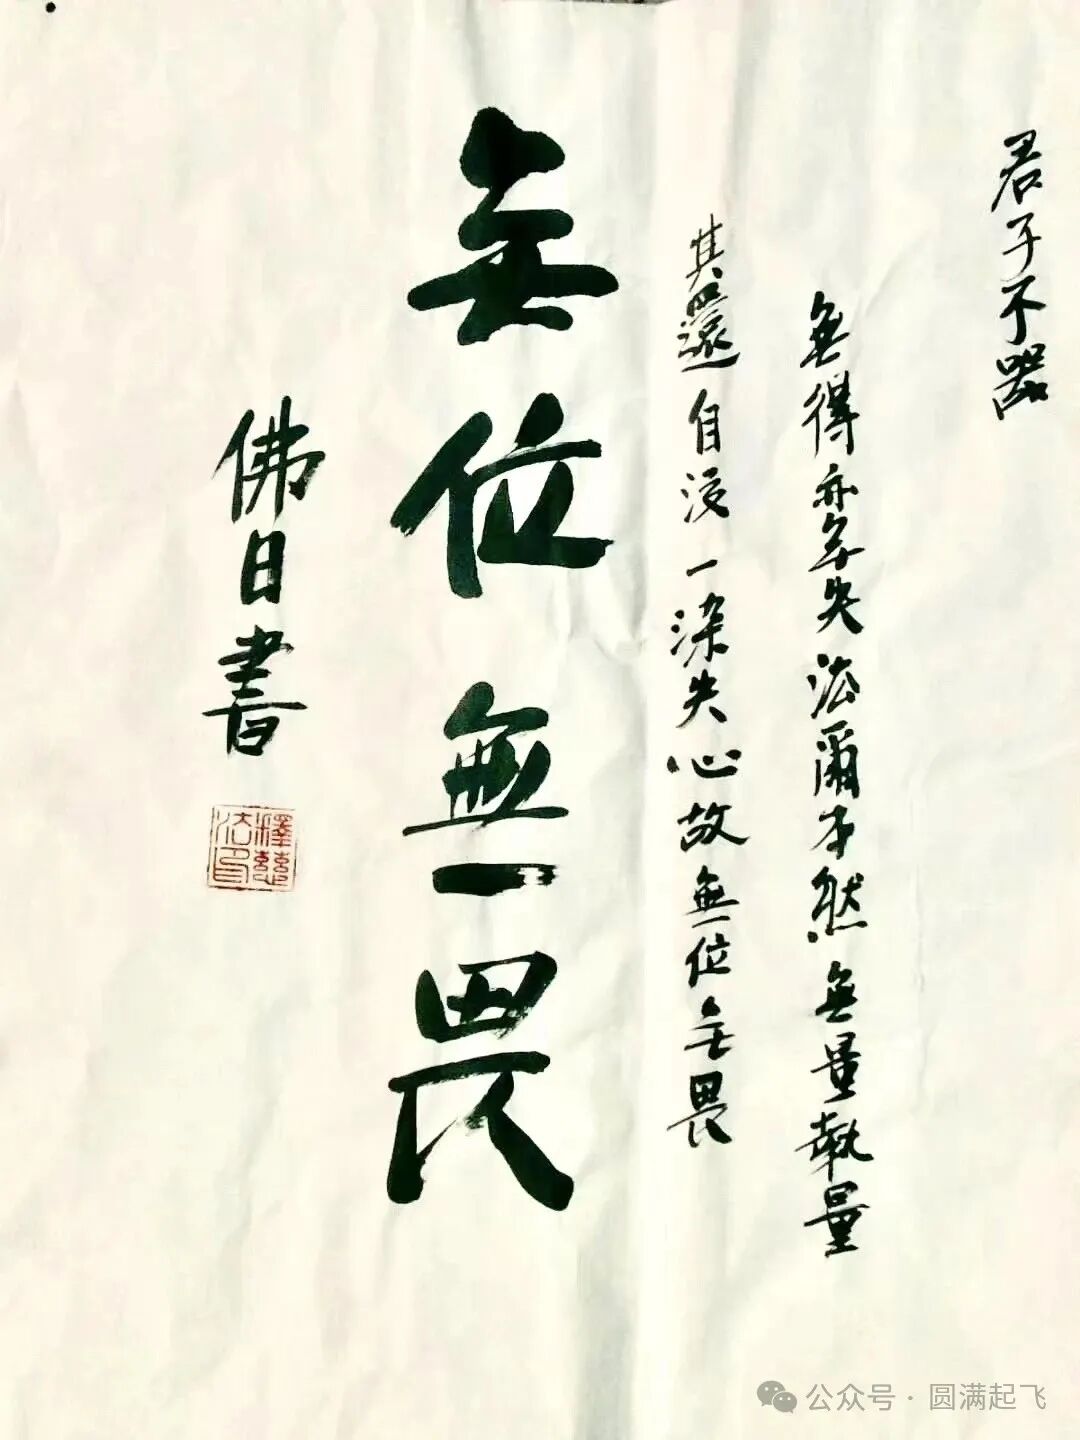 君子不器
無得亦無失法爾本然無量執量
其還自没一染失心故無位無畏
无位無畏
佛日書
公众号·圆满起飞